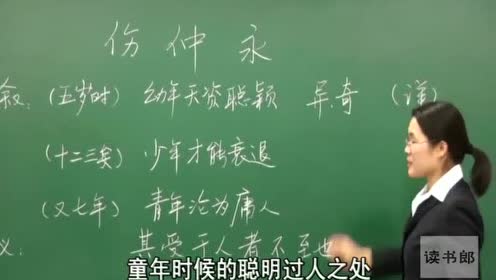 伤仲永
叙：(五岁时) 幼年天资聪颖 异、奇 (详)
(十二三矣) 少年才能衰退
(又七年) 青年沦为庸人
议： 其受于人者不至也
童年时候的聪明过人之处
读书郎